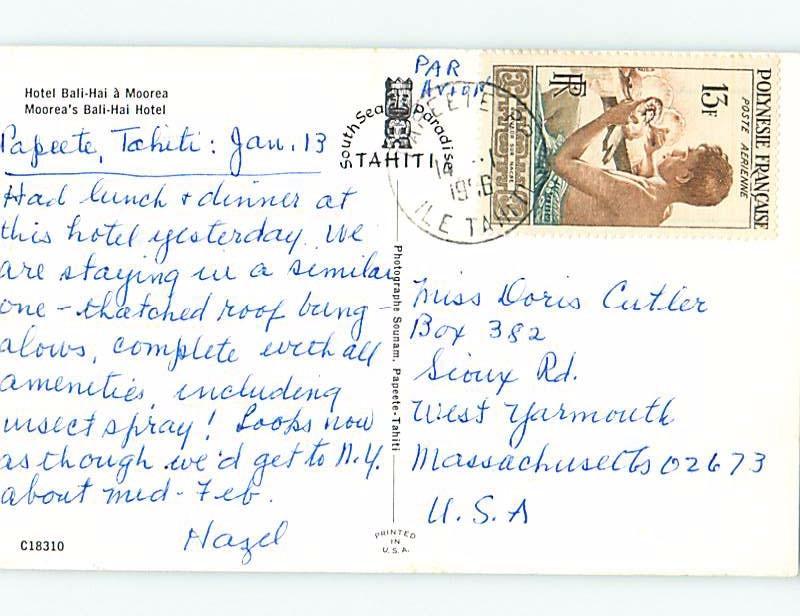 Hotel Bali-Hai à Moorea
Moorea's Bali-Hai Hotel
Papeete, Tahiti: Jan. 13
Had lunch + dinner at
this hotel yesterday. We
are staying in a similar
one - thatched roof bung-
alows, complete with all
amenities, including
insect spray! Looks now
as though we'd get to N.Y.
about mid-Feb.
Hazel
C18310
South Sea Paradise
TAHITI
Photographe Sounam, Papeete-Tahiti
PRINTED
IN
U.S.A.
PAR
AVION
ILE TAHITI
13F
RF
POSTE AERIENNE
POLYNESIE FRANÇAISE
Miss Doris Cutler
Box 382
Sioux Rd.
West Yarmouth
Massachusetts 02673
U.S.A